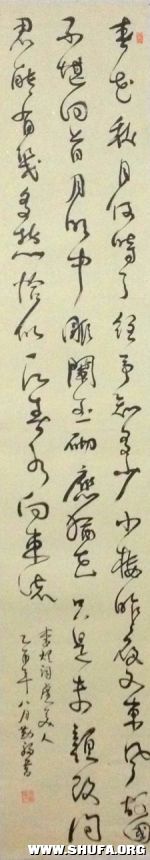 春花秋月何時了往事知多少小樓昨夜又東風故國
不堪回首月明中雕闌玉砌應猶在只是朱顏改問
君能有幾多愁恰似一江春水向東流
李煜詞虞美人
乙酉年八月書
WWW.SHUFA.ORG